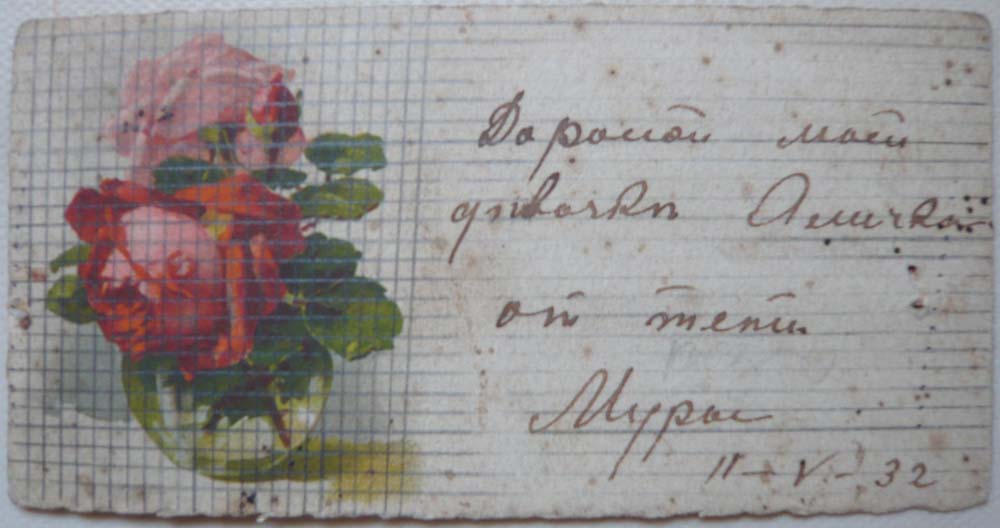 Дорогой моей
дѣвочкѣ Аличкѣ
от тети
Муры
11 – V – 32